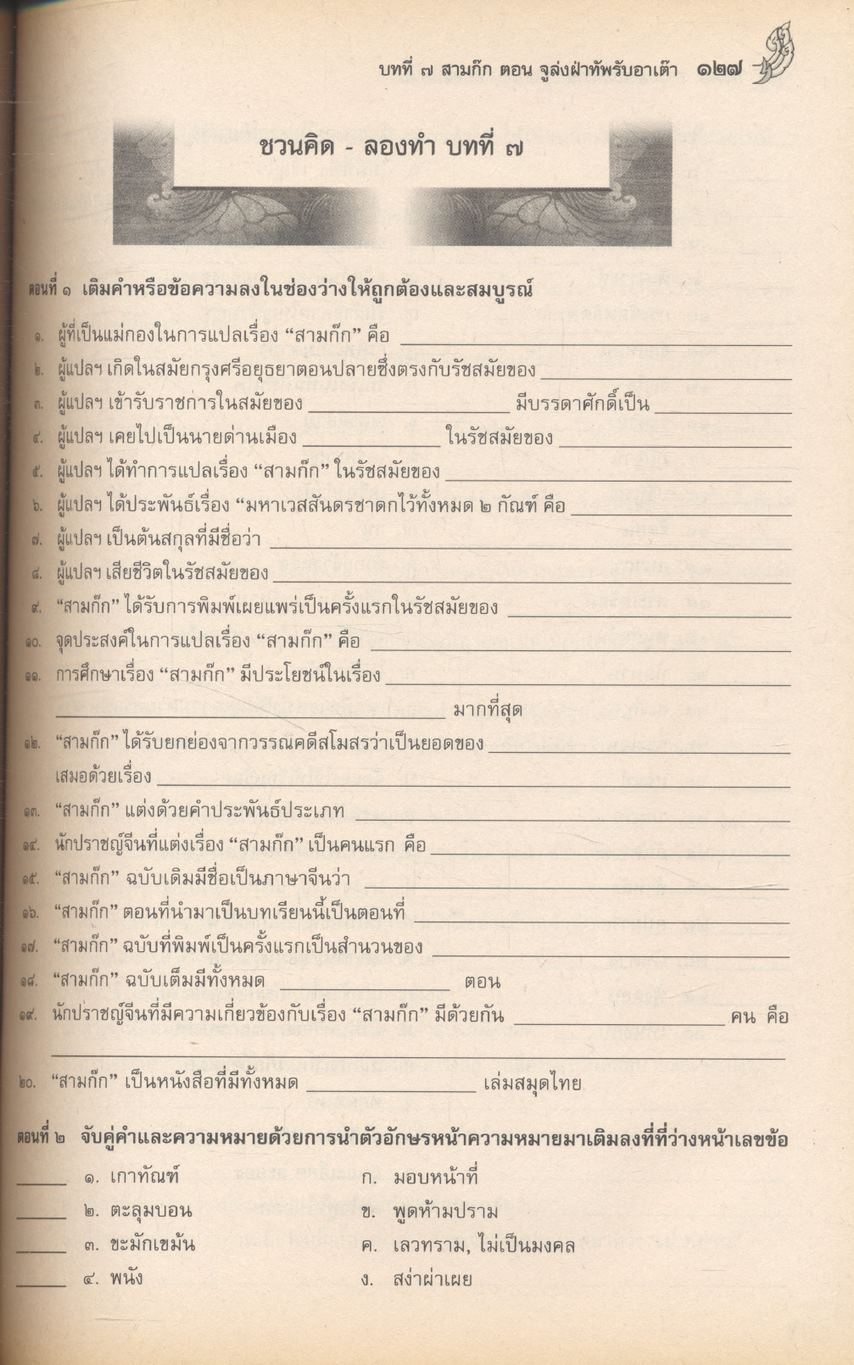 บทที่ ๗ สามก๊ก ตอน จูล่งฝ่าทัพรับอาเต๊า ๑๒๗
ชวนคิด - ลองทำ บทที่ ๗
ตอนที่ ๑ เติมคำหรือข้อความลงในช่องว่างให้ถูกต้องและสมบูรณ์
๑. ผู้ที่เป็นแม่กองในการแปลเรื่อง “สามก๊ก” คือ
๒. ผู้แปลฯ เกิดในสมัยกรุงศรีอยุธยาตอนปลายซึ่งตรงกับรัชสมัยของ
๓. ผู้แปลฯ เข้ารับราชการในสมัยของ มีบรรดาศักดิ์เป็น
๔. ผู้แปลฯ เคยไปเป็นนายด่านเมือง ในรัชสมัยของ
๕. ผู้แปลฯ ได้ทำการแปลเรื่อง “สามก๊ก” ในรัชสมัยของ
๖. ผู้แปลฯ ได้ประพันธ์เรื่อง “มหาเวสสันดรชาดกไว้ทั้งหมด ๒ กัณฑ์ คือ
๗. ผู้แปลฯ เป็นต้นสกุลที่มีชื่อว่า
๘. ผู้แปลฯ เสียชีวิตในรัชสมัยของ
๙. “สามก๊ก” ได้รับการพิมพ์เผยแพร่เป็นครั้งแรกในรัชสมัยของ
๑๐. จุดประสงค์ในการแปลเรื่อง “สามก๊ก” คือ
๑๑. การศึกษาเรื่อง “สามก๊ก” มีประโยชน์ในเรื่อง
มากที่สุด
๑๒. “สามก๊ก” ได้รับยกย่องจากวรรณคดีสโมสรว่าเป็นยอดของ
เสมอด้วยเรื่อง
๑๓. “สามก๊ก” แต่งด้วยคำประพันธ์ประเภท
๑๔. นักปราชญ์จีนที่แต่งเรื่อง “สามก๊ก” เป็นคนแรก คือ
๑๕. “สามก๊ก” ฉบับเดิมมีชื่อเป็นภาษาจีนว่า
๑๖. “สามก๊ก” ตอนที่นำมาเป็นบทเรียนนี้เป็นตอนที่
๑๗. “สามก๊ก” ฉบับที่พิมพ์เป็นครั้งแรกเป็นสำนวนของ
๑๘. “สามก๊ก” ฉบับเต็มมีทั้งหมด ตอน
๑๙. นักปราชญ์จีนที่มีความเกี่ยวข้องกับเรื่อง “สามก๊ก” มีด้วยกัน คน คือ
๒๐. “สามก๊ก” เป็นหนังสือที่มีทั้งหมด เล่มสมุดไทย
ตอนที่ ๒ จับคู่คำและความหมายด้วยการนำตัวอักษรหน้าความหมายมาเติมลงที่ที่ว่างหน้าเลขข้อ
๑. เกาทัณฑ์ ก. มอบหน้าที่
๒. ตะลุมบอน ข. พูดห้ามปราม
๓. ขะมักเขม้น ค. เลวทราม, ไม่เป็นมงคล
๔. พนัง ง. สง่าผ่าเผย